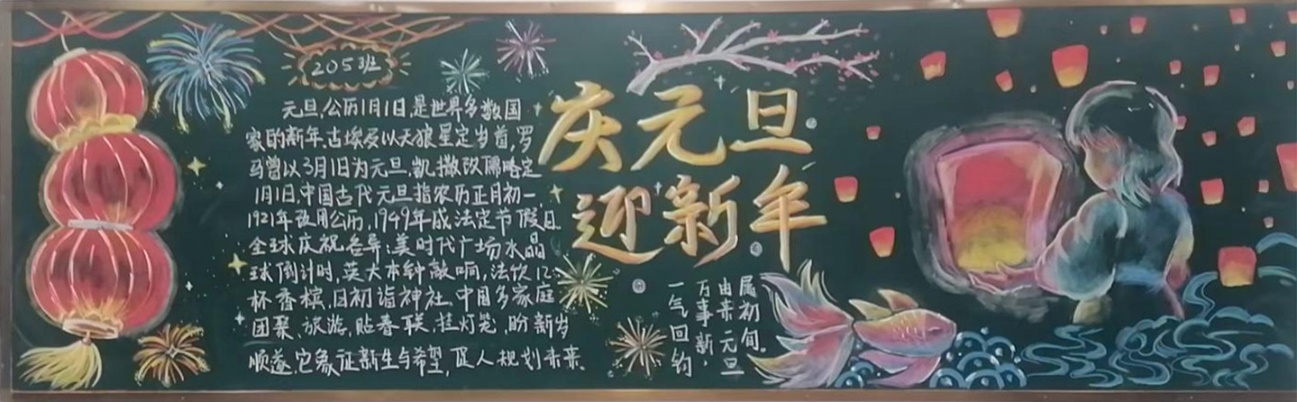 205班
元旦,公历1月1日,是世界多数国
家的新年,古埃及以天狼星定岁首,罗
马曾以3月1日为元旦,凯撒改儒略定
1月1日,中国古代元旦指农历正月初一,
1921年改用公历,1949年成法定节假日
全球庆祝各异:美时代广场水晶
球倒计时,英大本钟敲响,法饮12
杯香槟,日初诣神社,中国多家庭
团聚,旅游,贴春联,挂灯笼,盼新岁
顺遂.它象征新生与希望,促人规划未来.
庆元旦
迎新年
属初旬.
由来元旦
万事新,
一气回钧